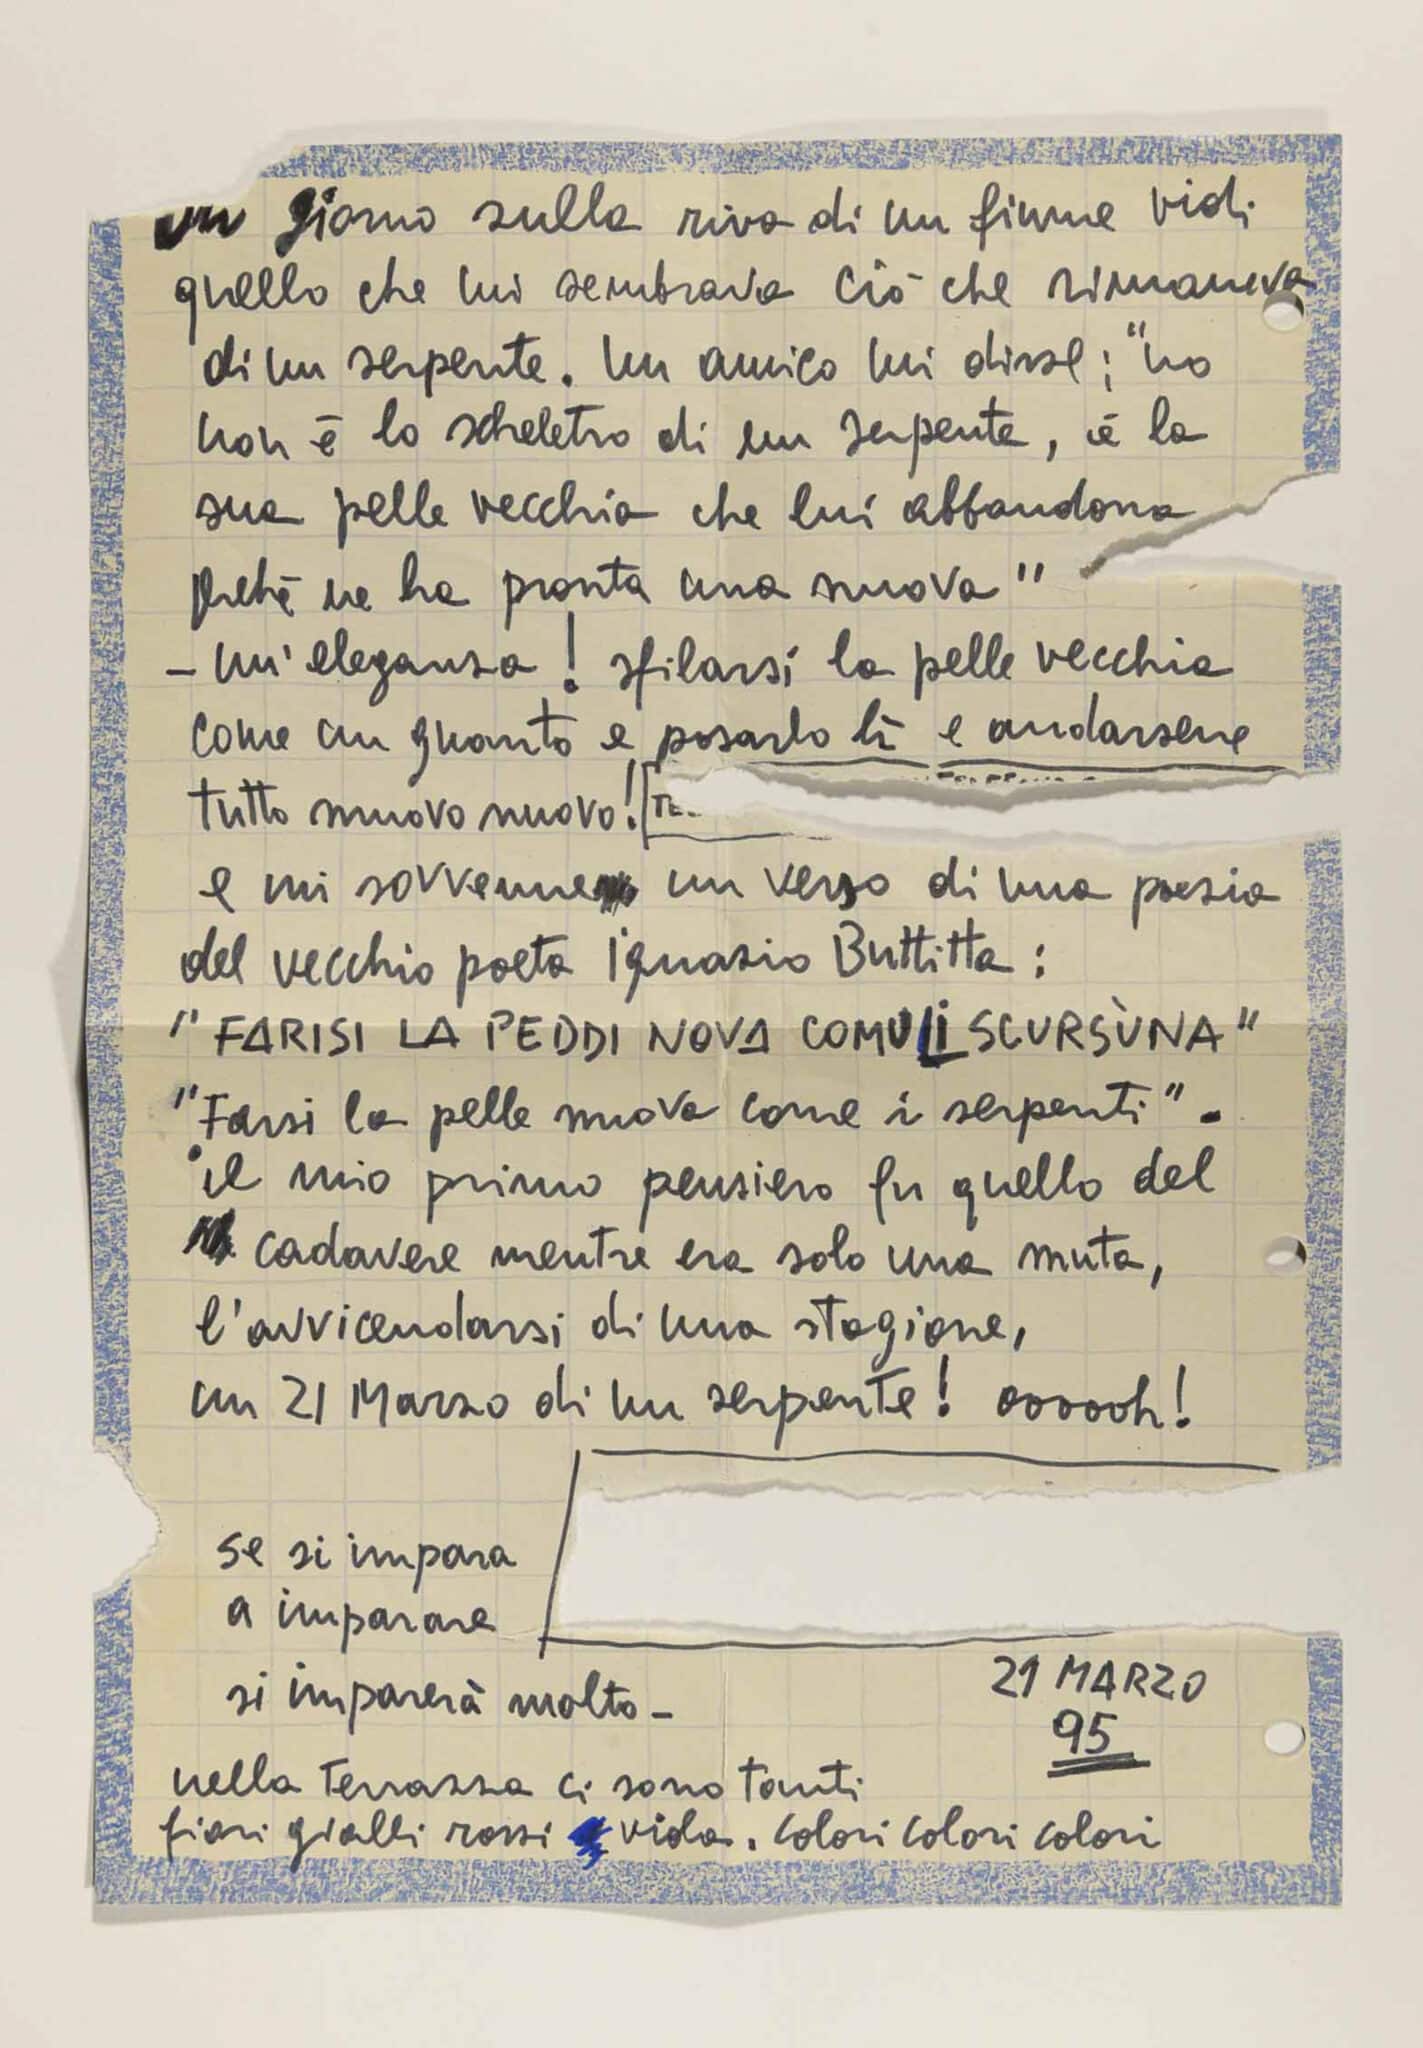 un giorno sulla riva di un fiume vidi
quello che mi sembrava ciò che rimaneva
di un serpente. Un amico mi disse: "no
non è lo scheletro di un serpente, è la
sua pelle vecchia che lui abbandona
perché ne ha pronta una nuova"
- un'eleganza! sfilarsi la pelle vecchia
come un guanto e posarlo lì e andarsene
tutto nuovo nuovo!
e mi sovvenne un verso di una poesia
del vecchio poeta Ignazio Buttitta:
"FARISI LA PEDDI NOVA COMU LI SCURSÙNA"
"Farsi la pelle nuova come i serpenti".
il mio primo pensiero fu quello del
cadavere mentre era solo una muta,
l'avvicendarsi di una stagione,
un 21 Marzo di un serpente! oooooh!
se si impara
a imparare
si imparerà molto-
21 MARZO
95
nella terrazza ci sono tanti
fiori gialli rossi viola. colori colori colori